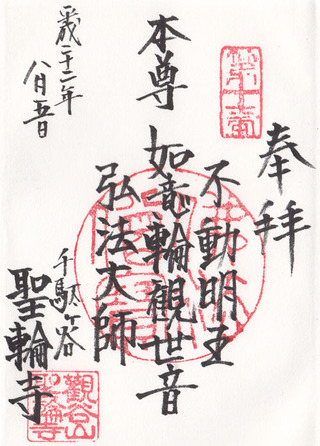 奉拝
第十番
不動明王
本尊 如意輪観世音
弘法大師
平成二十二年
八月五日
千駄ヶ谷
聖輪寺
観谷山
聖輪寺